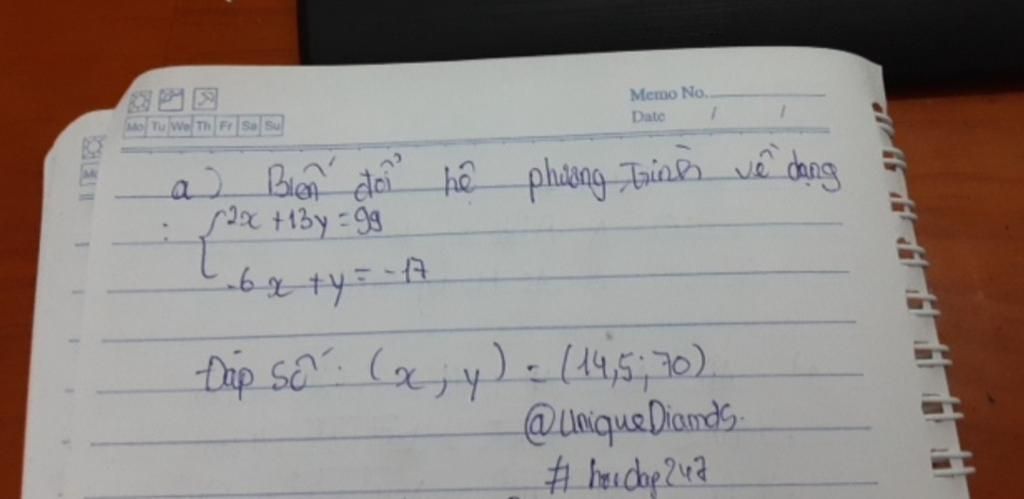 Memo No.
Mo Tu We Th Fr Sa Su
Date / /
a) Biến đổi hệ phương trình về dạng
: { 2x + 13y = 99
-6x + y = -17
Đáp số: (x; y) = (14,5; 70)
@UniqueDiamds.
# hoidap247